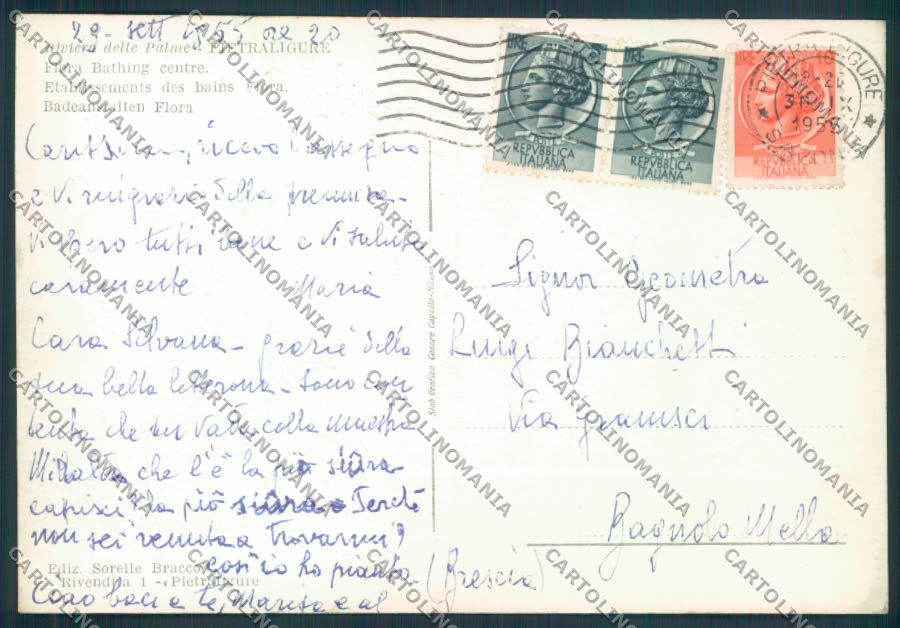 29 - sett 1955 ore 20
Riviera delle Palme - PIETRALIGURE
Flora Bathing centre.
Etablissements des bains Flora.
Badeanstalten Flora
Carissimi, ricevo l'assegno
e vi ringrazio della premura -
Vi spero tutti bene e Vi saluto
caramente Maria
Cara Silvana - grazie della
tua bella letterona - sono con
tenta che tu vada colla maestra
che l'è la più siura
capisci la più siura - Perchè
non sei venuta a trovarmi?
così io ho pianto
Ciao baci a te, Marisa e al
Ediz. Sorelle Bracco
Rivendita 1 - Pietraligure
Stab Grafico Cesare Capello - Milano
LIRE 5
REPVBBLICA
ITALIANA
LIRE 5
REPVBBLICA
ITALIANA
LIRE 10
REPVBBLICA
ITALIANA
PIETRA LIGURE
1955
Signor Geometra
Luigi Bianchetti
Via Gramsci
Bagnolo Mella
(Brescia)
CARTOLINOMANIA